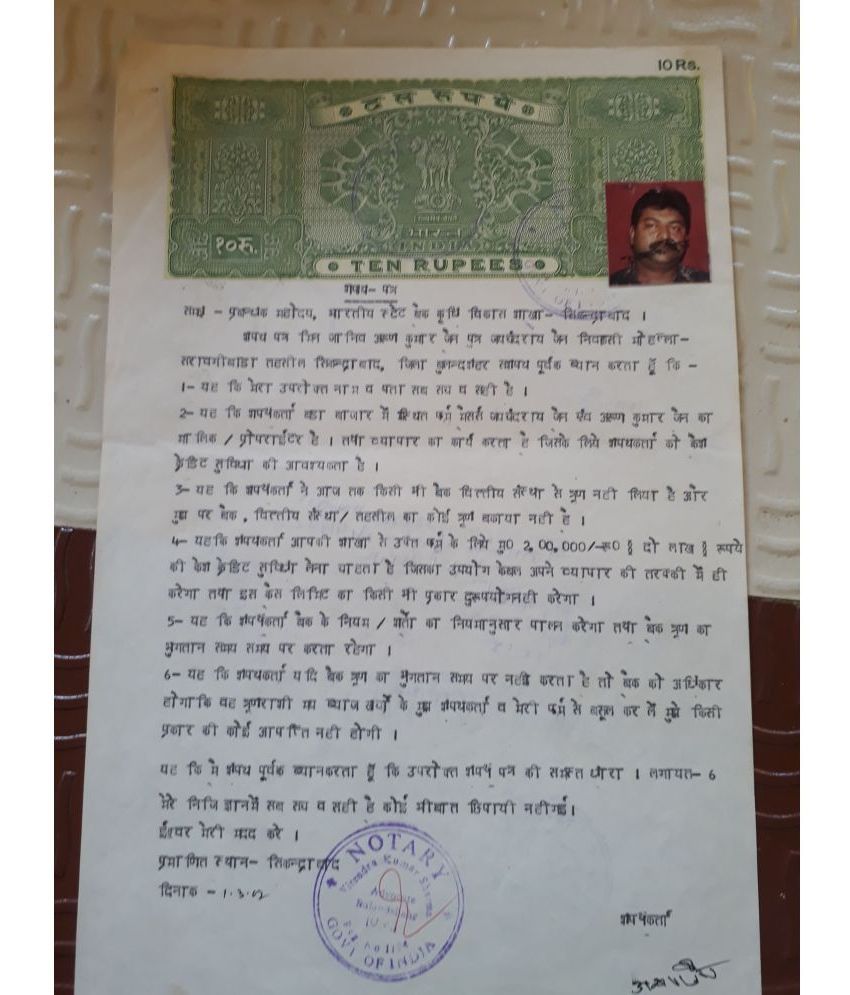 10 Rs.
दस रुपये
भारत
INDIA
१०रू.
TEN RUPEES
शपथ-पत्र
समक्ष - प्रबन्धक महोदय, भारतीय स्टेट बैंक कृषि विकास शाखा- सिकन्द्राबाद ।
शपथ पत्र मिन जानिव अरूण कुमार जैन पुत्र जयचंदराय जैन निवासी मोहल्ला-
सरावगीबाडा तहसील सिकन्द्राबाद, जिला बुलन्दशहर सशपथ पूर्वक ब्यान करता हूँ कि -
1- यह कि मेरा उपरोक्त नाम व पता सब सच व सही है ।
2- यह कि शपथकर्ता बडा बाजार में स्थित फर्म मैसर्स जयचंदराय जैन एंव अरूण कुमार जैन का
मालिक / प्रोपराईटर है । तथा व्यापार का कार्य करता है जिसके लिये शपथकर्ता को कैश
क्रेडिट सुविधा की आवश्यकता है ।
3- यह कि शपथकर्ता ने आज तक किसी भी बैंक वित्तीय संस्था से ऋण नही लिया है और
मुझ पर बैंक, वित्तीय संस्था/ तहसील का कोई ऋण बकाया नही है ।
4- यहकि शपथकर्ता आपकी शाखा से उक्त फर्म के लिये मु0 2,00,000/-रू0 § दो लाख § रूपये
की कैश क्रेडिट सुविधा लेना चाहता है जिसका उपयोग केवल अपने व्यापार की तरक्की में ही
करेगा तथा इस कैस लिमिट का किसी भी प्रकार दुरूपयोगनही करेगा ।
5- यह कि शपथकर्ता बैंक के नियम / शर्तो का नियमानुसार पालन करेगा तथा बैंक ऋण का
भुगतान समय समय पर करता रहेगा ।
6- यह कि शपथकर्ता यदि बैंक ऋण का भुगतान समय पर नही करता है तो बैंक को अधिकार
होगाकि वह ऋणराशी मय ब्याज खर्चो के मुझ शपथकर्ता व मेरी फर्म से बसूल कर लें मुझे किसी
प्रकार की कोई आपत्ति नही होगी ।
यह कि मै शपथ पूर्वक ब्यानकरता हूँ कि उपरोक्त शपथ पत्र की समस्त धारा 1 लगायत- 6
मेरे निजि ज्ञानमें सब सच व सही है कोई भीबात छिपायी नहीगई।
ईश्वर मेरी मदद करे ।
प्रमाणित स्थान- सिकन्द्राबाद
दिनाक - 1.3.02
NOTARY
Kumar Sharma
Advocate
GOVT OF INDIA
शपथकर्ता